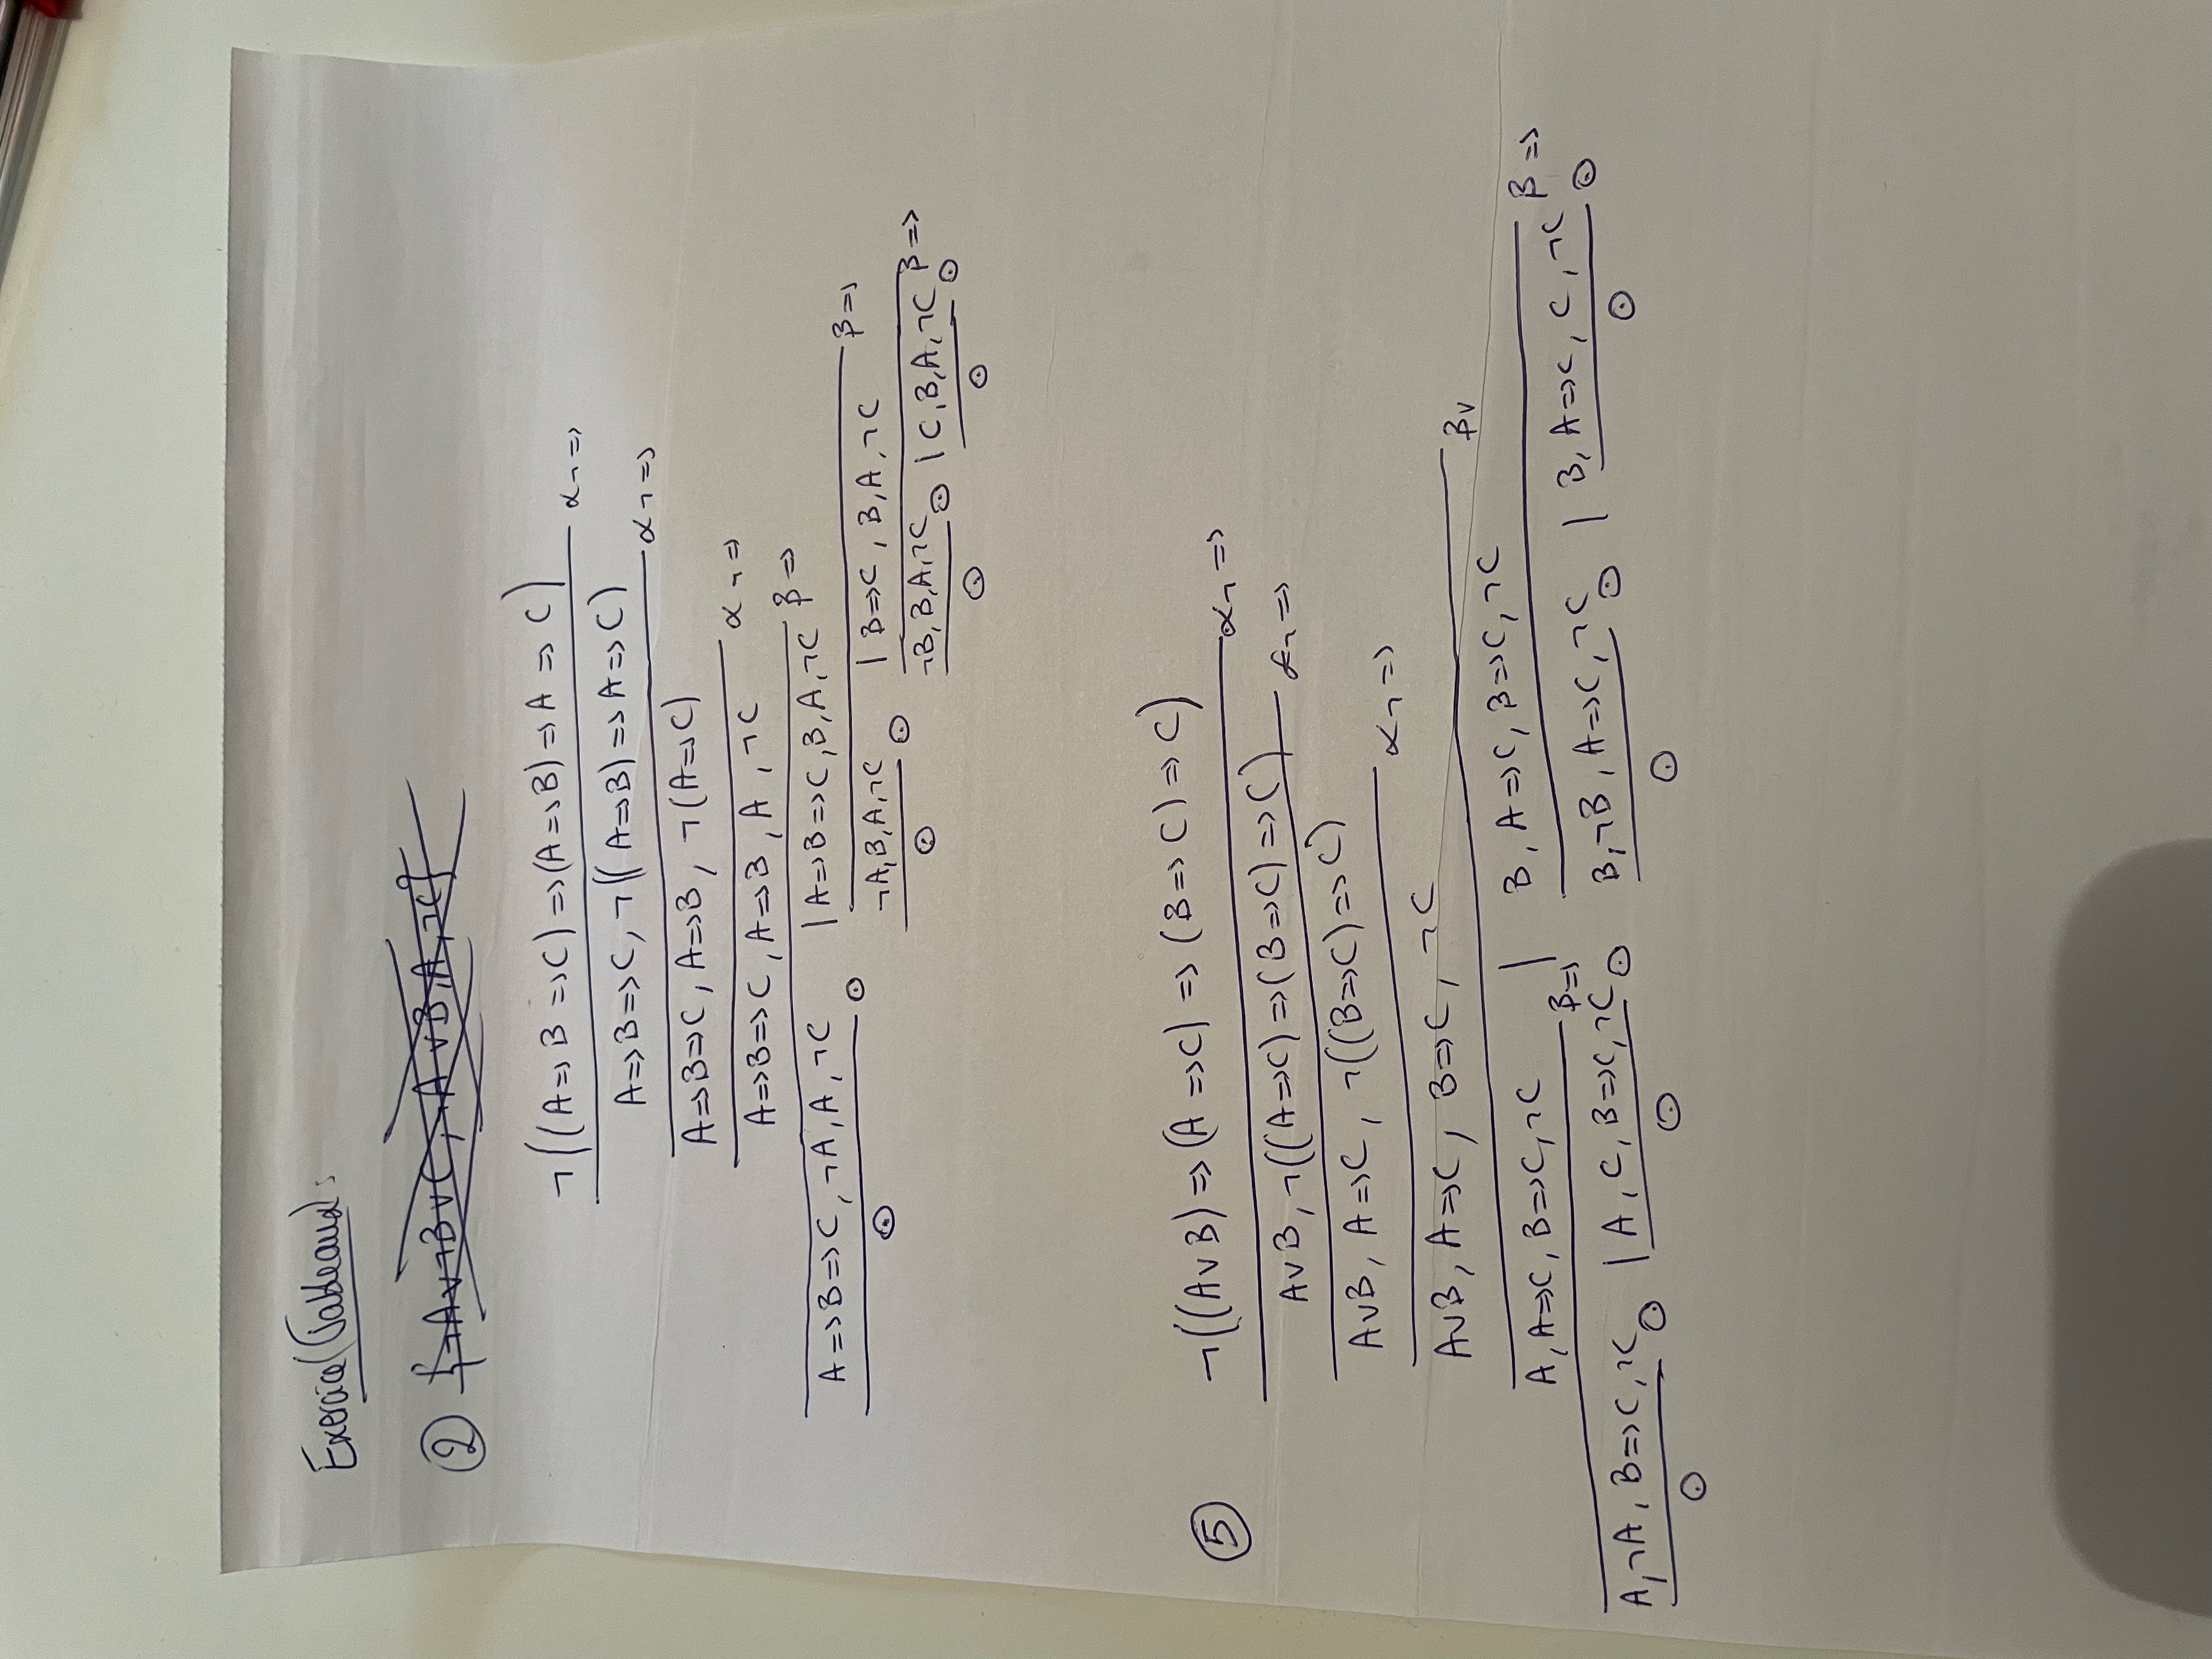 Exercice (Tableaux) :
② {¬A∨¬B∨C, ¬A∨B, A, ¬C}
¬((A=>B=>C)=>(A=>B)=>A=>C)
α¬=>
A=>B=>C, ¬((A=>B)=>A=>C)
α¬=>
A=>B=>C, A=>B, ¬(A=>C)
α¬=>
A=>B=>C, A=>B, A, ¬C
β=>
A=>B=>C, ¬A, A, ¬C ⊙ | A=>B=>C, B, A, ¬C
β=>
⊙ ¬A, B, A, ¬C ⊙ | B=>C, B, A, ¬C
β=>
⊙ ¬B, B, A, ¬C ⊙ | C, B, A, ¬C ⊙
⊙ ⊙
⑤ ¬((A∨B)=>(A=>C)=>(B=>C)=>C)
α¬=>
A∨B, ¬((A=>C)=>(B=>C)=>C)
α¬=>
A∨B, A=>C, ¬((B=>C)=>C)
α¬=>
A∨B, A=>C, B=>C, ¬C
β∨
A, A=>C, B=>C, ¬C | B, A=>C, B=>C, ¬C
β=> β=>
A, ¬A, B=>C, ¬C ⊙ | A, C, B=>C, ¬C ⊙ B, ¬B, A=>C, ¬C ⊙ | B, A=>C, C, ¬C ⊙
⊙ ⊙ ⊙ ⊙